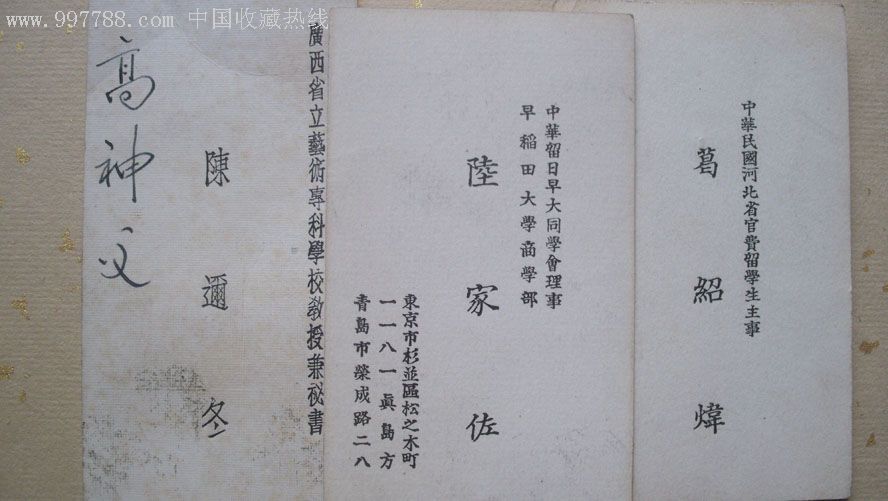 www.997788.com 中国收藏热线
中華民國河北省官費留學生主事
葛紹煒
中華留日早大同學會理事
早稲田大學商學部
陸家佐
東京市杉並區松之木町
一一八一眞島方
青島市榮成路二八
廣西省立藝術專科學校教授兼祕書
陳邇冬
高神父